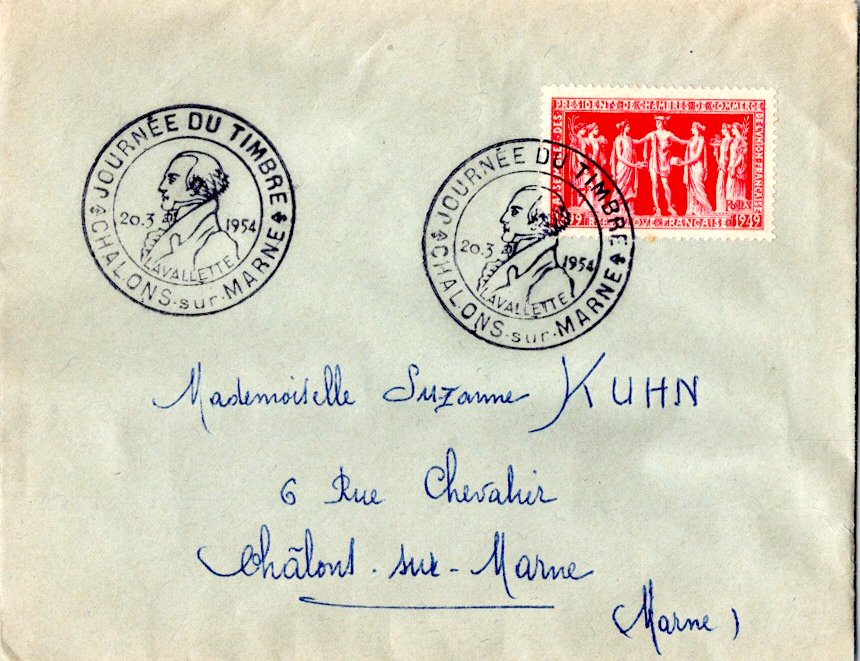 JOURNÉE DU TIMBRE
20.3 1954
LAVALLETTE
CHALONS-sur-MARNE
JOURNÉE DU TIMBRE
20.3 1954
LAVALLETTE
CHALONS-sur-MARNE
DES PRÉSIDENTS DE CHAMBRES DE COMMERCE DE L'UNION FRANÇAISE
FRANÇAISE 1949
Mademoiselle Suzanne KUHN
6 Rue Chevalier
Châlons-sur-Marne
(Marne)